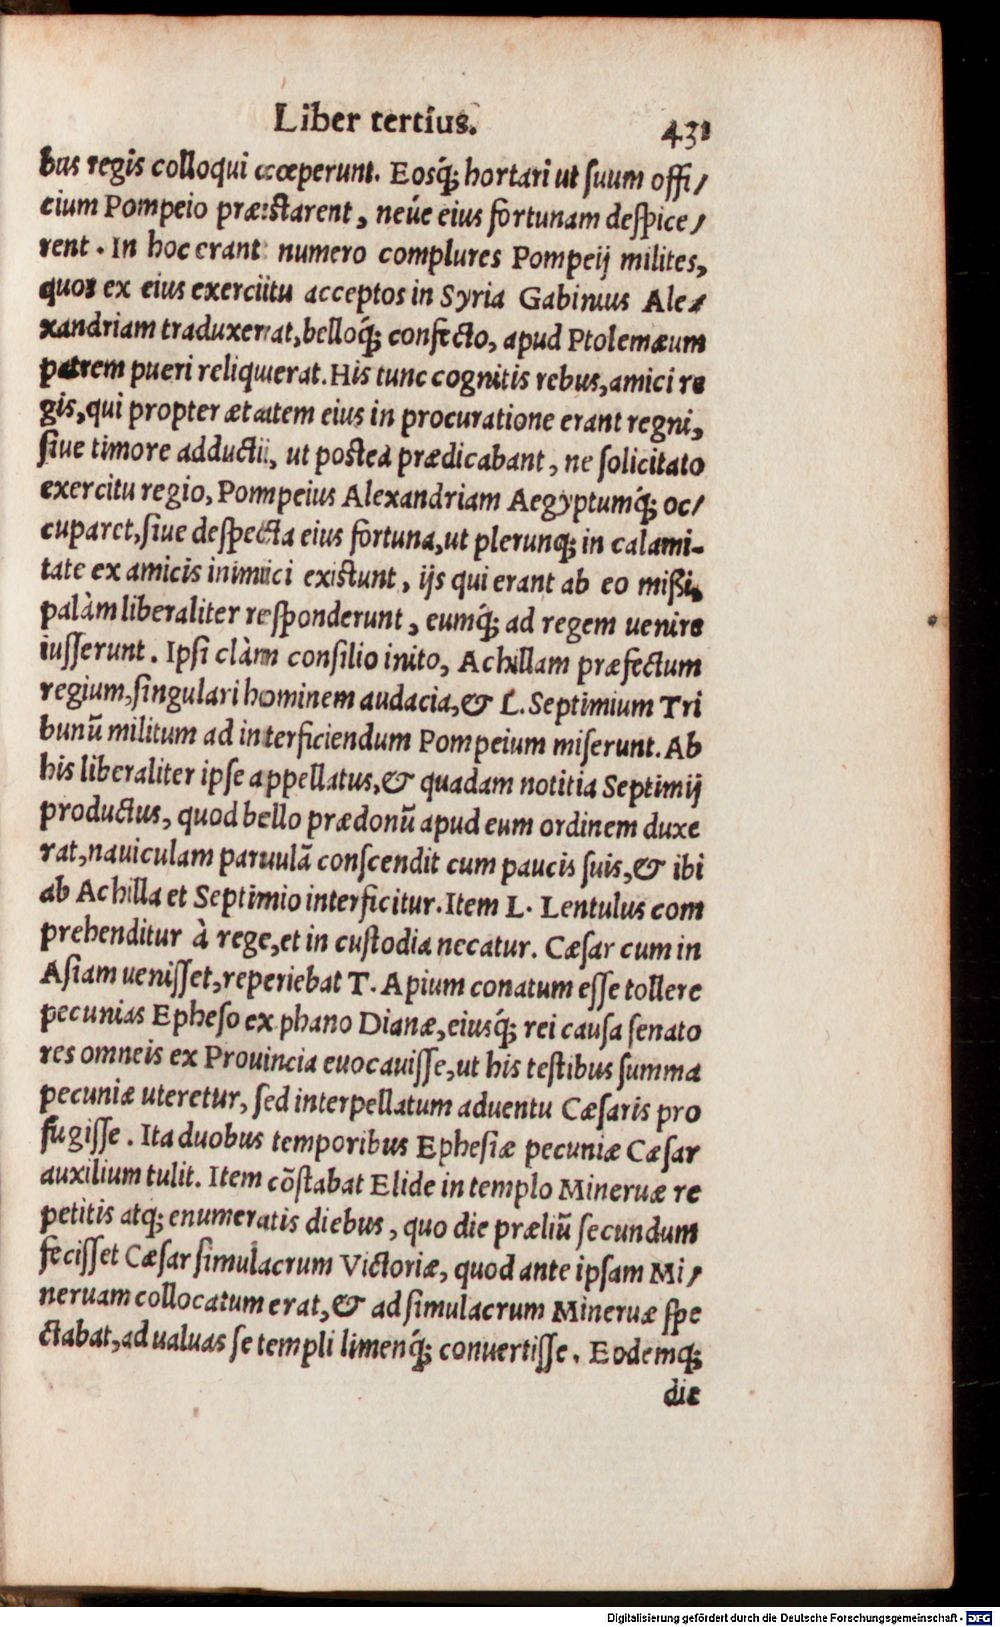 Liber tertius. 431
bus regis colloqui cœperunt. Eosq́; hortari ut suum offi/
cium Pompeio præstarent, neúe eius fortunam despice/
rent. In hoc erant numero complures Pompeij milites,
quos ex eius exercitu acceptos in Syria Gabinius Ale/
xandriam traduxerat, belloq́; confecto, apud Ptolemæum
patrem pueri reliquerat. His tunc cognitis rebus, amici re
gis, qui propter ætatem eius in procuratione erant regni,
siue timore adducti, ut postea prædicabant, ne solicitato
exercitu regio, Pompeius Alexandriam Aegyptumq́; oc/
cuparet, siue despecta eius fortuna, ut plerunq; in calami-
tate ex amicis inimici existunt, ijs qui erant ab eo mißi,
palàm liberaliter responderunt, eumq́; ad regem uenire
iusserunt. Ipsi clàm consilio inito, Achillam præfectum
regium, singulari hominem audacia, & L. Septimium Tri
bunū militum ad interficiendum Pompeium miserunt. Ab
his liberaliter ipse appellatus, & quadam notitia Septimij
productus, quod bello prædonū apud eum ordinem duxe
rat, nauiculam paruulā conscendit cum paucis suis, & ibi
ab Achilla et Septimio interficitur. Item L. Lentulus com
prehenditur à rege, et in custodia necatur. Cæsar cum in
Asiam uenisset, reperiebat T. Apium conatum esse tollere
pecunias Epheso ex phano Dianæ, eiusq́; rei causa senato
res omneis ex Prouincia euocauisse, ut his testibus summa
pecuniæ uteretur, sed interpellatum aduentu Cæsaris pro
fugisse. Ita duobus temporibus Ephesiæ pecuniæ Cæsar
auxilium tulit. Item cōstabat Elide in templo Mineruæ re
petitis atq; enumeratis diebus, quo die præliū secundum
fecisset Cæsar simulacrum Victoriæ, quod ante ipsam Mi/
neruam collocatum erat, & ad simulacrum Mineruæ spe
ctabat, ad ualuas se templi limenq́; conuertisse. Eodemq;
die
Digitalisierung gefördert durch die Deutsche Forschungsgemeinschaft - DFG